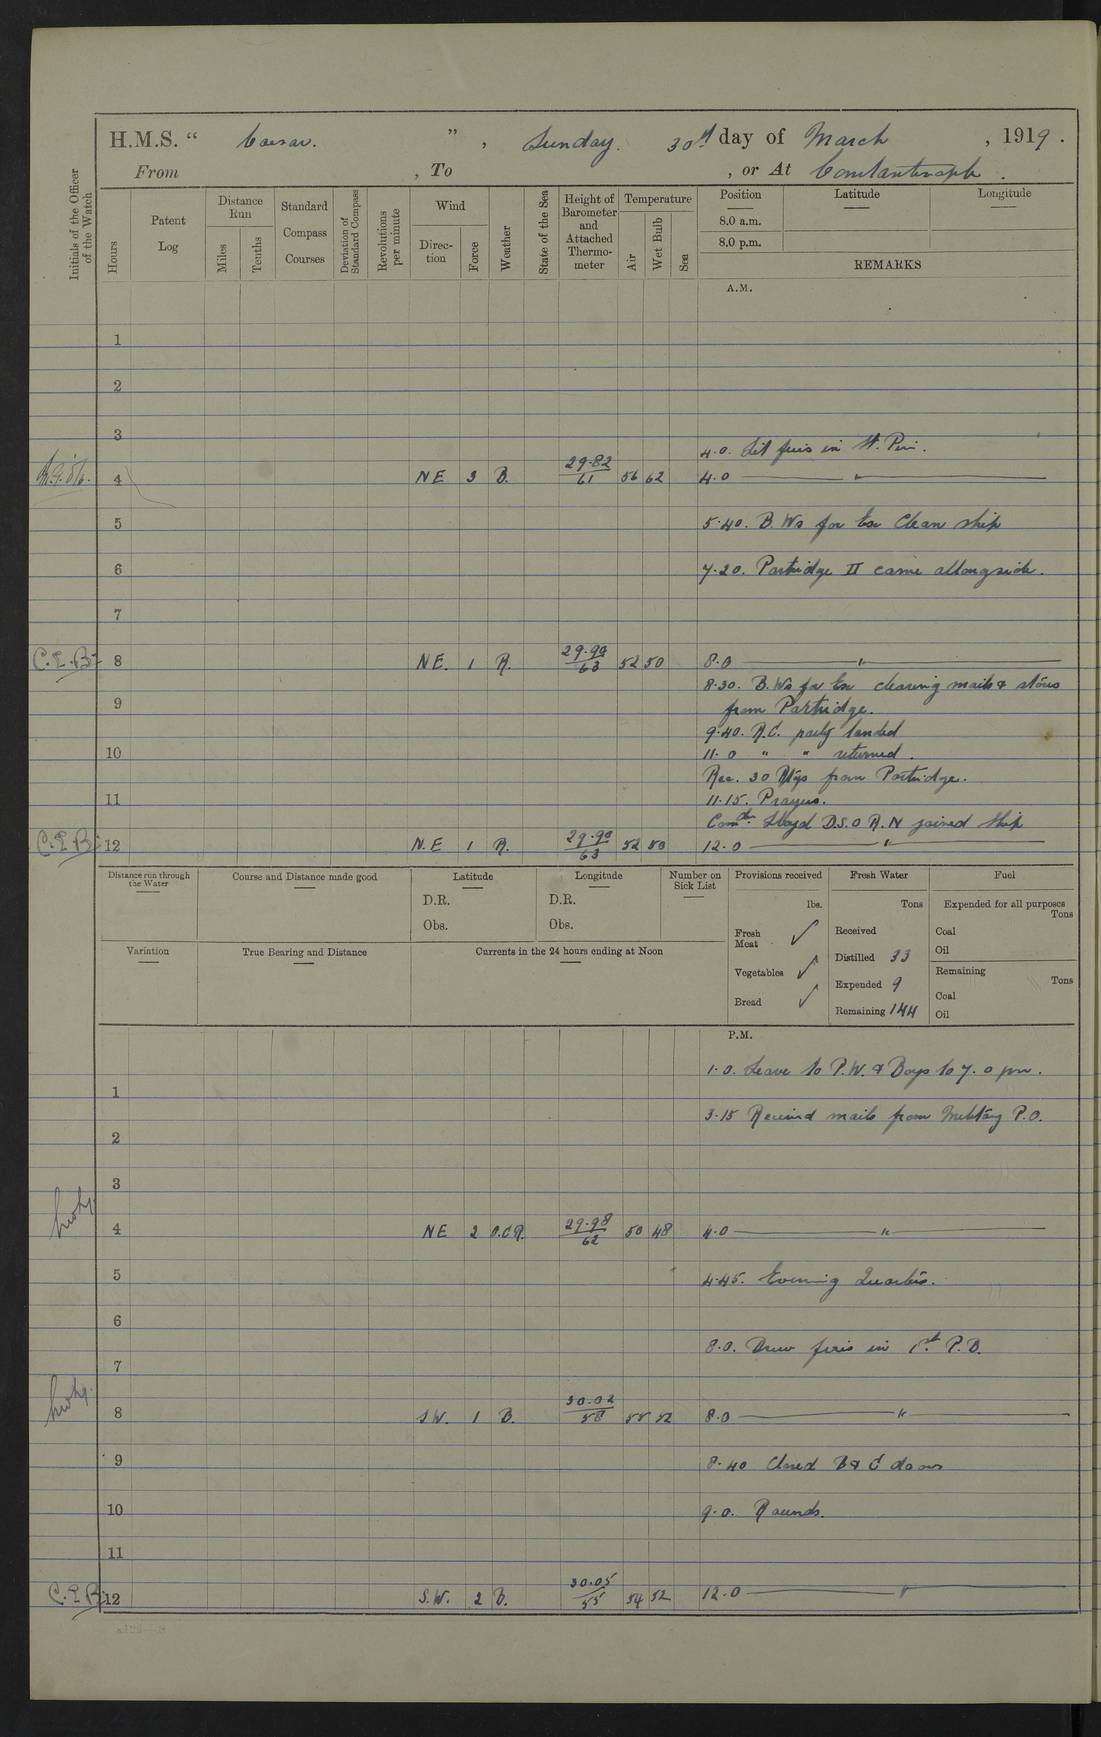 H.M.S. “ Caesar. ” , Sunday. 30th day of March , 1919.
From , To , or At Constantinople.
Initials of the Officer of the Watch
Hours
Patent Log
Distance Run
Miles
Tenths
Standard Compass Courses
Deviation of Standard Compass
Revolutions per minute
Wind
Direc-tion
Force
Weather
State of the Sea
Height of Barometer and Attached Thermo-meter
Temperature
Air
Wet Bulb
Sea
Position
8.0 a.m.
8.0 p.m.
Latitude
Longitude
REMARKS
A.M.
1
2
3
4.0. Lit fires in
4 NE 3 B. 29.82 61 56 62 4.0 "
5 5.40. B.Ws for Ex Clean ship
6 7.20. Partridge II came allongside.
7
C.E.B. 8 NE. 1 R. 29.90 63 52 50 8.0 "
8.30. B.Ws for Ex clearing mails & stores
9 from Partridge.
9.40. R.C. party landed
10 11.0 " " returned.
Rec. 30 Rtgs from Partridge.
11 11.15. Prayers.
Comdr. Lloyd D.S.O R.N joined ship
C.E.B. 12 N.E 1 R. 29.90 63 52 50 12.0 "
Distance run through the Water
Course and Distance made good
Latitude
D.R.
Obs.
Longitude
D.R.
Obs.
Number on Sick List
Provisions received
lbs.
Fresh Meat ✓
Vegetables ✓
Bread ✓
Fresh Water
Tons
Received
Distilled 33
Expended 9
Remaining 144
Fuel
Expended for all purposes
Tons
Coal
Oil
Remaining
Tons
Coal
Oil
Variation
True Bearing and Distance
Currents in the 24 hours ending at Noon
P.M.
1.0. Leave to P.W. & Boys to 7.0 pm.
1
3.15 Received mails from Military P.O.
2
3
4 NE 2 O.C.R. 29.98 62 50 48 4.0 "
5 4.45. Evening Quarters.
6
8.0. Drew fires in 1st P.B.
7
8 SW. 1 B. 30.02 58 55 52 8.0 "
9 8.40 Closed B & C doors
10 9.0. Rounds.
11
C.E.B. 12 S.W. 2 B. 30.05 55 54 52 12.0 "